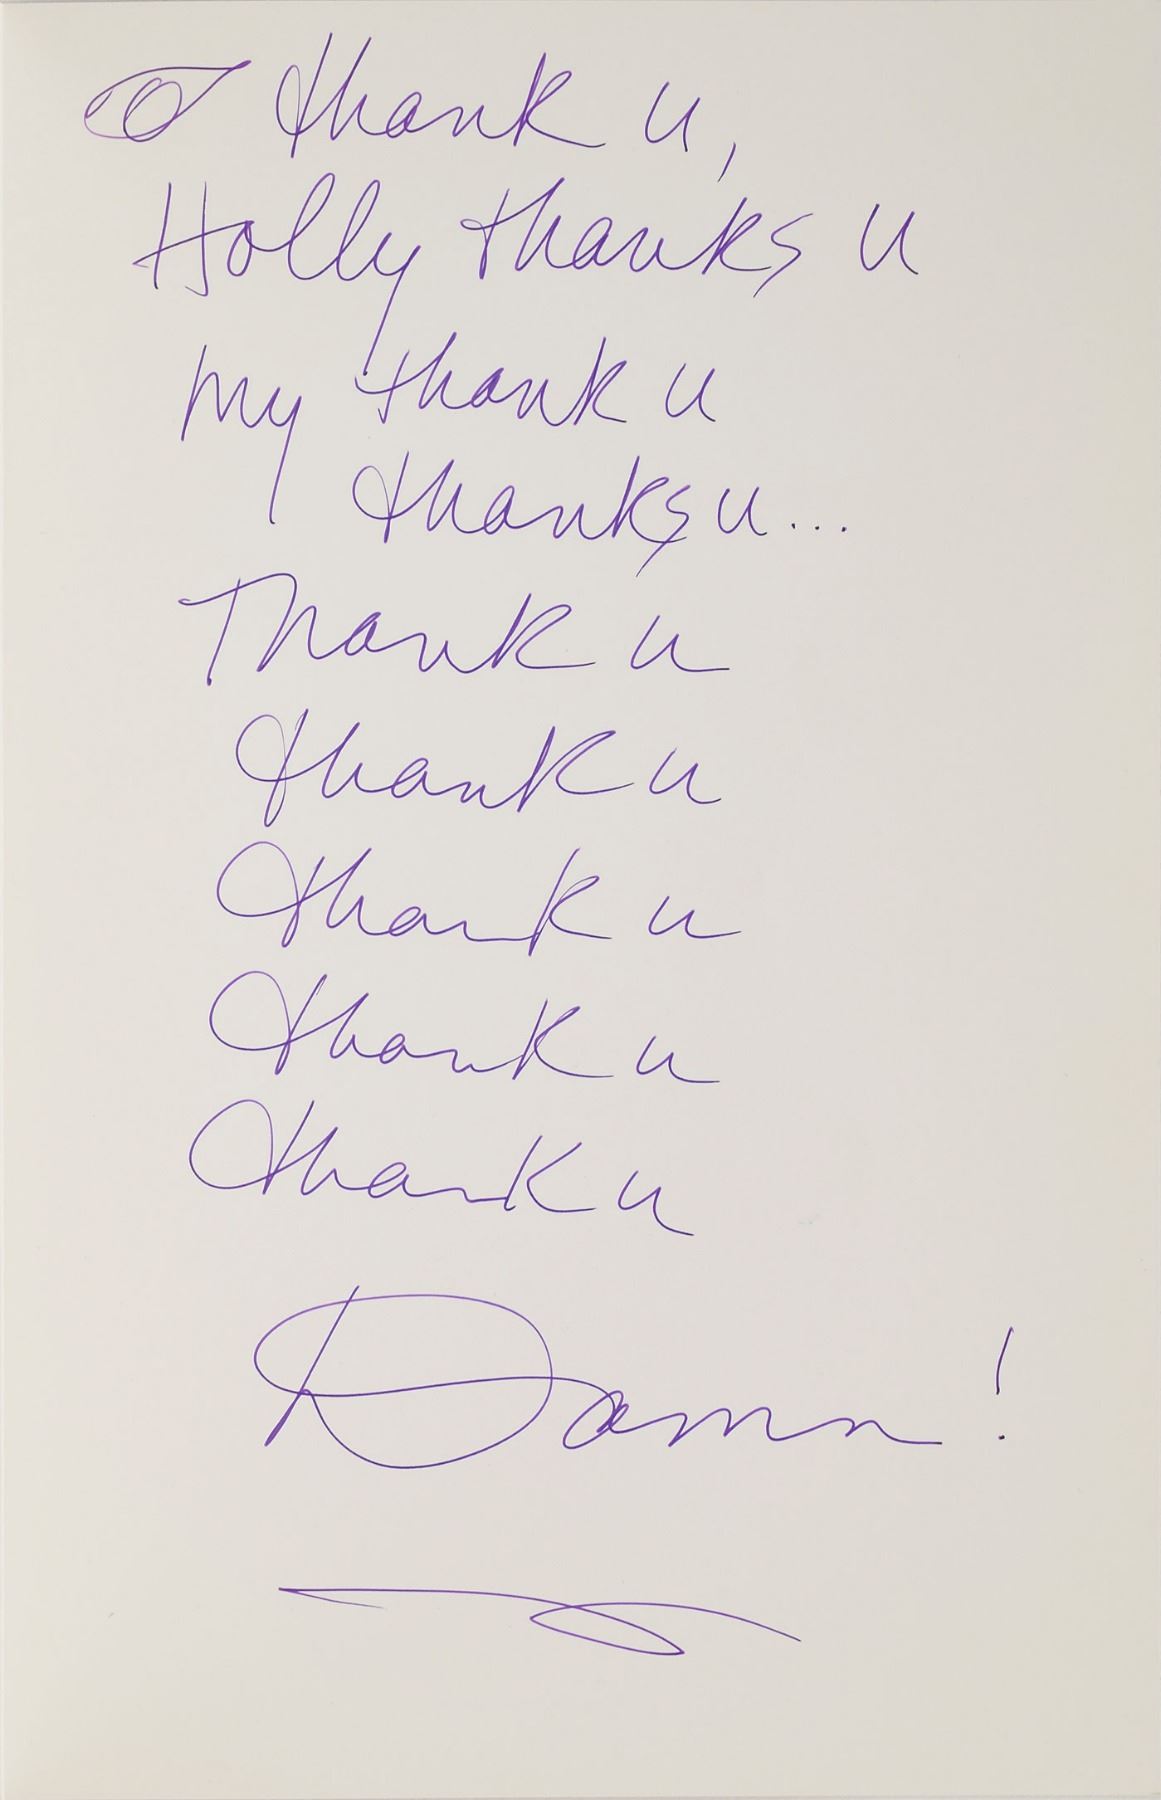 thank u,
Holly thanks u
my thank u
thanks u...
Thank u
thank u
thank u
thank u
thank u
Damn!